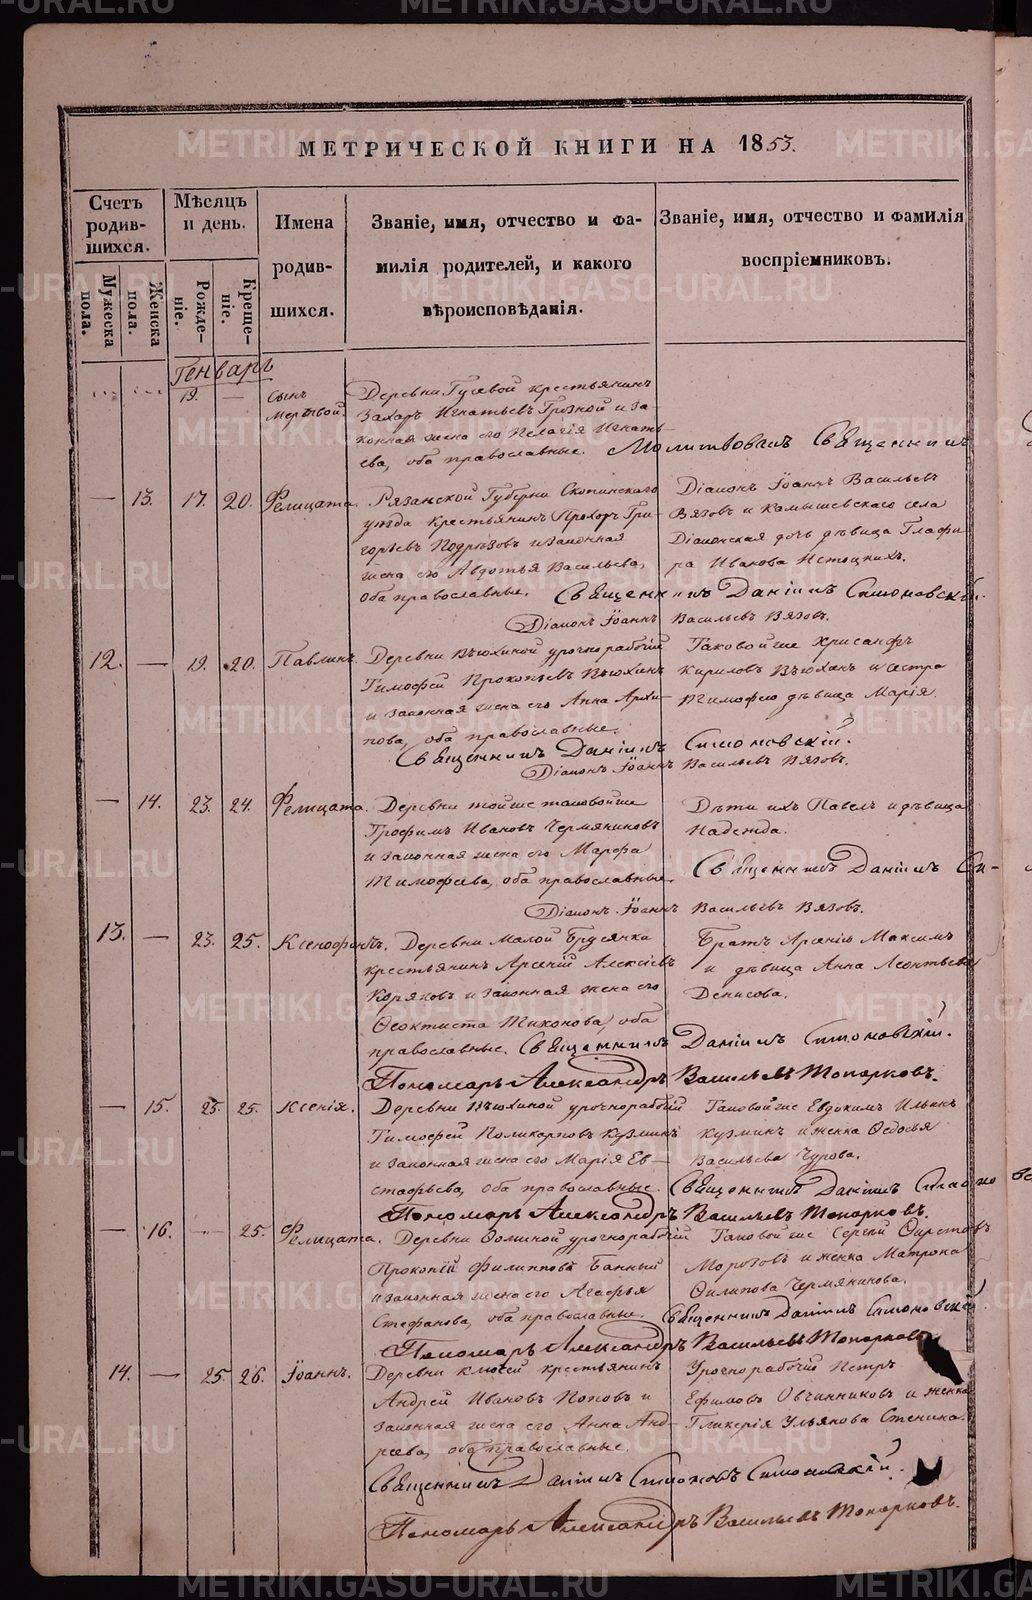 МЕТРИЧЕСКОЙ КНИГИ НА 1853.
Счетъ родив-шихся.
Мѣсяцъ и день.
Имена родив-шихся.
Званіе, имя, отчество и фа-
милія родителей, и какого
вѣроисповѣданія.
Званіе, имя, отчество и фамилія
воспріемниковъ.
Мужеска пола.
Женска пола.
Рожде-ніе.
Креще-ніе.
Генварь
19. — Сынъ мертвой.
Деревни Гусевой крестьянинъ
Захаръ Игнатьевъ Грозной и за-
конная жена его Пелагія Игнать-
ева, оба православные. Молитвовалъ Священникъ
— 13. 17. 20. Фелицата.
Рязанской Губерни Скопинскаго
уѣзда крестьянинъ Прохоръ Гри-
горьевъ Подрѣзовъ и законная
жена его Авдотья Васильева,
оба православные.
Діаконъ Іоаннъ Васильевъ
Вязовъ и Камышевскаго села
Діаконская дочь дѣвица Глафи-
ра Иванова Истоцкихъ.
Священникъ Даніилъ Симоновскій.
Діаконъ Іоаннъ Васильевъ Вязовъ.
12. — 19. 20. Павлинъ.
Деревни Вьюхиной урочнорабочій
Тимофей Прокопьевъ Вьюхинъ
и законная жена его Анна Архи-
пова, оба православные.
Таковой же Хрисанфъ
Кириловъ Вьюхинъ и сестра
Тимофею дѣвица Марія.
Священникъ Даніилъ Симоновскій.
Діаконъ Іоаннъ Васильевъ Вязовъ.
— 14. 23. 24. Фелицата.
Деревни тойже таковойже
Трофимъ Ивановъ Чермяниновъ
и законная жена его Марфа
Тимофеева, оба православные.
Дѣти ихъ Павелъ и дѣвица
Надежда.
Священникъ Даніилъ Си-
Діаконъ Іоаннъ Васильевъ Вязовъ.
13. — 23. 25. Ксенофонтъ.
Деревни Малой Брусянки
крестьянинъ Арсеній Алексіевъ
Коряковъ и законная жена его
Феоктиста Тихонова, оба
православные.
Братъ Арсенію Максимъ
и дѣвица Анна Леонтьева
Денисова.
Священникъ Даніилъ Симоновскій.
Пономарь Александръ Васильевъ Топорковъ.
— 15. 25. 25. Ксенія.
Деревни Вьюхиной урочнорабочій
Тимофей Поликарповъ Кузминъ
и законная жена его Марія Ев-
стафьева, оба православные.
Таковойже Евдокимъ Ильинъ
Кузминъ и женка Федосья
Васильева Чурова.
Священникъ Даніилъ
Пономарь Александръ Васильевъ Топорковъ.
— 16. — 25. Фелицата.
Деревни Фоминой урочнорабочій
Прокопій Филипповъ Банный
и законная жена его Агафья
Стефанова, оба православные.
Таковойже Сергей Фирстовъ
Морозовъ и женка Матрона
Филипова Чермянинова.
Священникъ Даніилъ Симоновскій
Пономарь Александръ Васильевъ Топорковъ
14. — 25. 26. Іоаннъ.
Деревни Ключей крестьянинъ
Андрей Ивановъ Поповъ и
законная жена его Анна Анд-
реева, оба православные.
Урочнорабочій Петръ
Ефимовъ Овчинниковъ и женка
Гликерія Ульянова Стенина.
Священникъ Даніилъ Симоновъ Симоновскій.
Пономарь Александръ Васильевъ Топорковъ.
METRIKI.GASO-URAL.RU